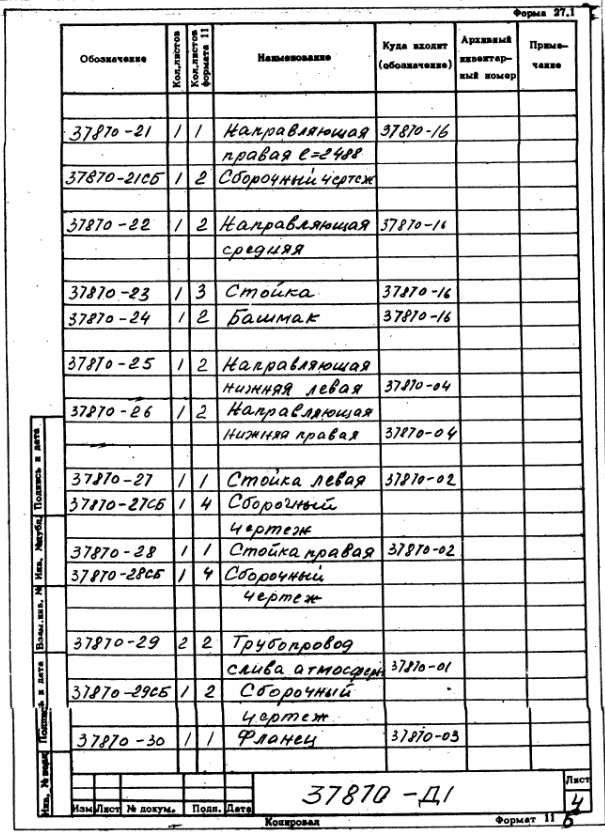 Форма 27.1
Обозначение Кол.листов Кол.листов формата 11 Наименование Куда входит (обозначение) Архивный инвентарный номер Примечание
37870-21 1 1 Направляющая 37870-16
правая l=2488
37870-21СБ 1 2 Сборочный чертеж
37870-22 1 2 Направляющая 37870-16
средняя
37870-23 1 3 Стойка 37870-16
37870-24 1 2 Башмак 37870-16
37870-25 1 2 Направляющая
нижняя левая 37870-04
37870-26 1 2 Направляющая
нижняя правая 37870-04
37870-27 1 1 Стойка левая 37870-02
37870-27СБ 1 4 Сборочный
чертеж
37870-28 1 1 Стойка правая 37870-02
37870-28СБ 1 4 Сборочный
чертеж
37870-29 2 2 Трубопровод
слива атмосферн 37870-01
37870-29СБ 1 2 Сборочный
чертеж
37870-30 1 1 Фланец 37870-03
Инв. № подл Подпись и дата Взам.инв. № Инв. №дубл. Подпись и дата
37870-Д1
Лист
4
Изм Лист № докум. Подп. Дата
Копировал Формат 11
6